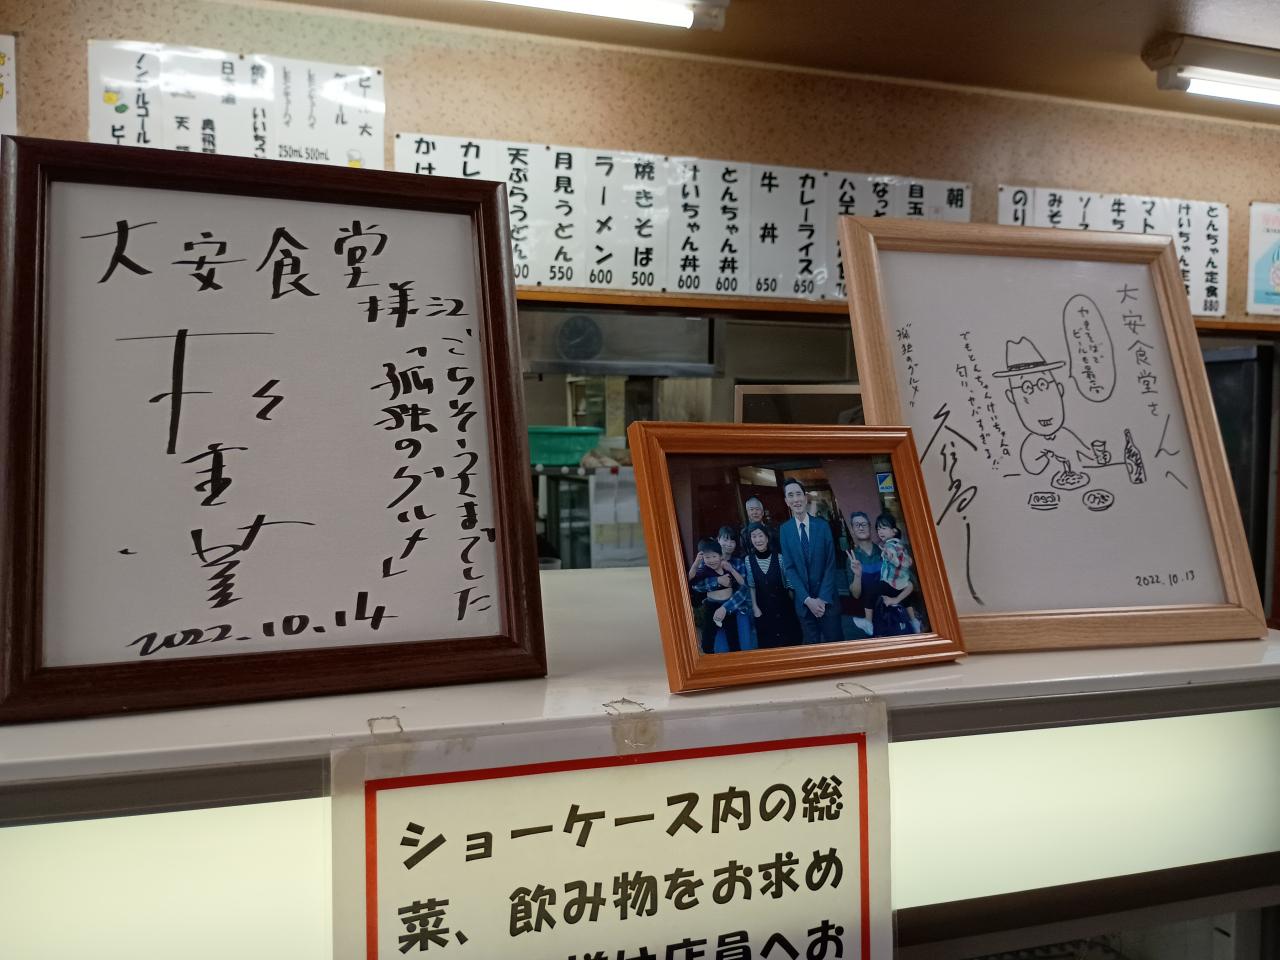 ノンアルコール
ビー
日本酒
いいちこ
250ml 500ml
ビール 大
かけ
カレ
天ぷらうどん
月見うどん
550
ラーメン
600
焼きそば
500
けいちゃん丼
600
とんちゃん丼
600
牛丼
650
カレーライス
650
ハムエ
なっと
目玉
朝
のり
みそ
ソース
牛ち
トマト
けいちゃん定食
とんちゃん定食
880
大安食堂
様江
ごちそうさまでした
「孤独のグルメ」
2022.10.14
大安食堂さんへ
やきそばで
ビールも最高
でもとんちゃんけいちゃんの
匂い、ヤバすぎる!!
"孤独のグルメ"
久住昌之
2022.10.13
ショーケース内の総
菜、飲み物をお求め
様は店員へお